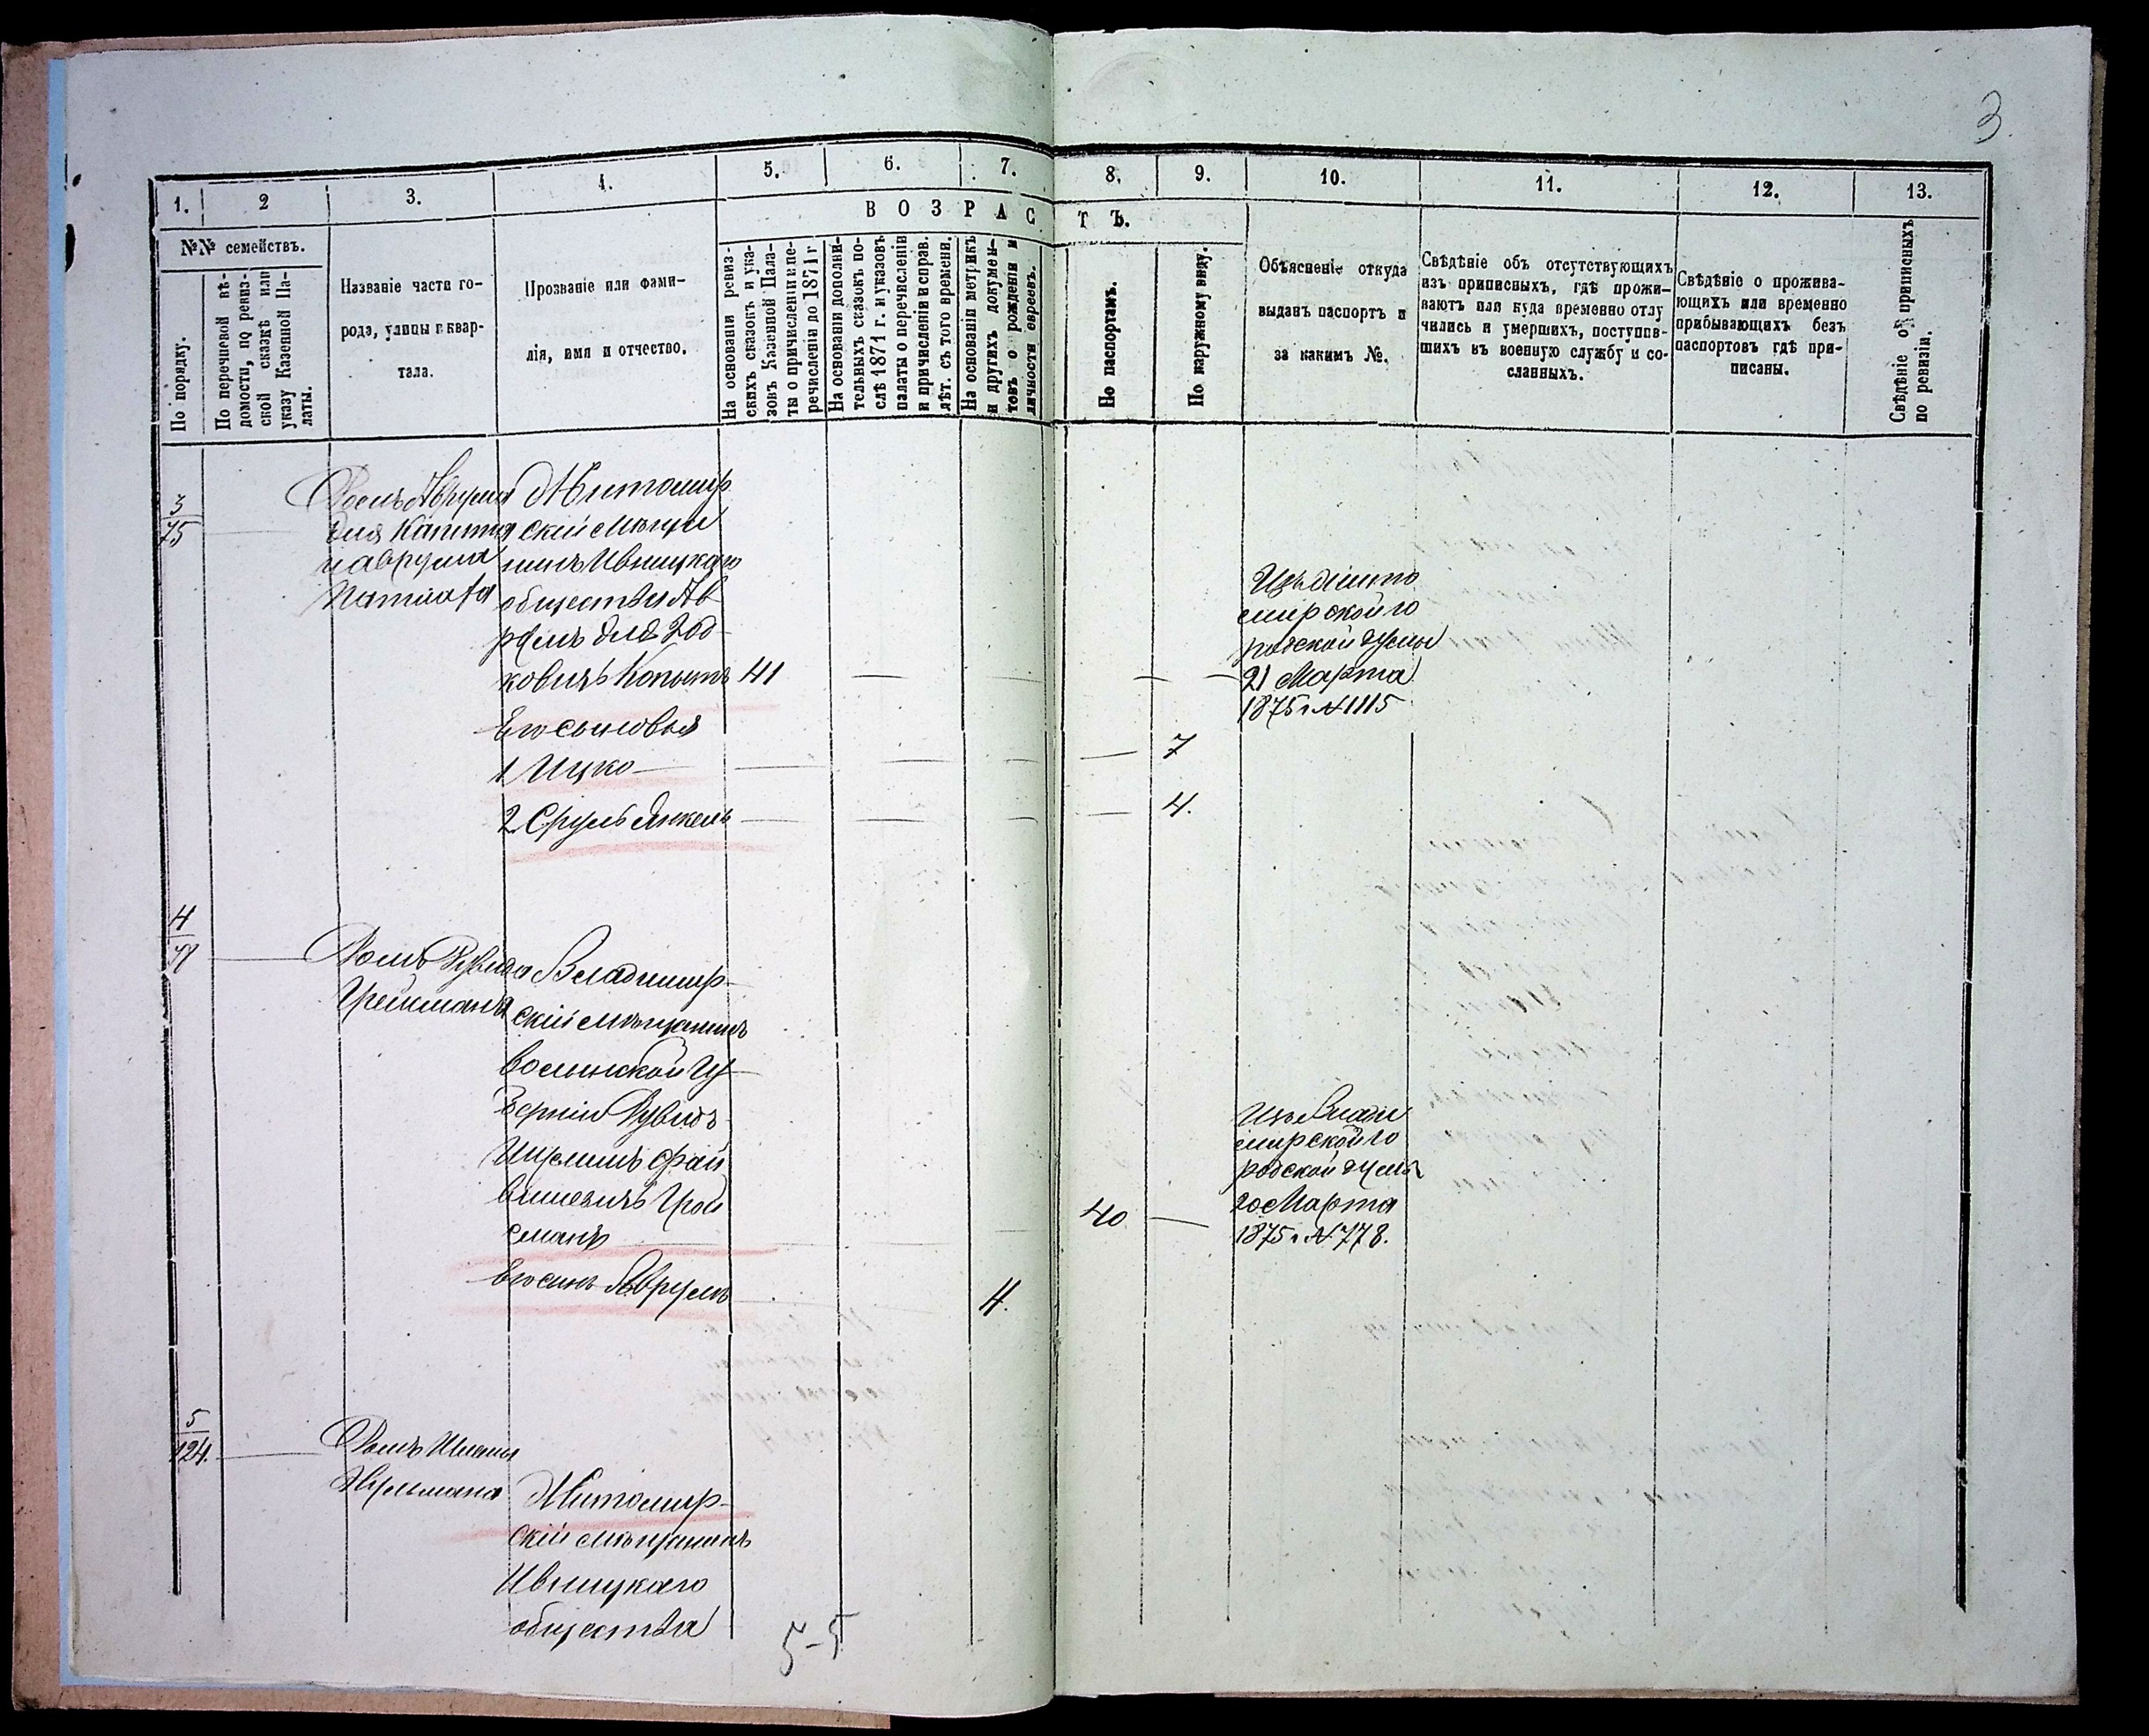 3
1.
2
3.
4.
5.
6.
7.
8.
9.
10.
11.
12.
13.
№№ семействъ.
ВОЗРАСТЪ.
По порядку.
По перечневой вѣ-
домости, по ревиз-
ской сказкѣ или
указу Казенной Па-
латы.
Названіе части го-
рода, улицы и квар-
тала.
Прозваніе или фами-
лія, имя и отчество.
На основаніи ревиз-
скихъ сказокъ и ука-
зовъ Казенной Пала-
ты о причисленіи и пе-
речисленіи до 1871 г
На основаніи дополни-
тельныхъ сказокъ по-
слѣ 1871 г. и указовъ
палаты о перечисленіи
и причисленіи и справ.
лѣт. съ того времени.
На основаніи метрикъ
и другихъ докумен-
товъ о рожденіи и
личности евреевъ.
По паспортамъ.
По наружному виду.
Объясненіе откуда
выданъ паспортъ и
за какимъ №.
Свѣдѣніе объ отсутствующихъ
изъ приписныхъ, гдѣ прожи-
ваютъ или куда временно отлу
чились и умершихъ, поступив-
шихъ въ военную службу и со-
сланныхъ.
Свѣдѣніе о прожива-
ющихъ или временно
прибывающихъ безъ
паспортовъ гдѣ при-
писаны.
Свѣдѣніе о приписныхъ
по ревизіи.
3
75
Домъ Аврума
Житомир
скій мѣща
нинъ Ивницкаго
общества Ав
румъ
ковичъ Копытъ 41
Изъ Жито
мирской го
родской думы
21 Марта
1875 г № 1115
Его сыновья
1 Ицко
7
2 Сруль Янкель
4.
4
Домъ Рувина
Гройсмана
Владимир-
скій мѣщанинъ
Волынской Гу-
берніи Рувинъ
вишевичъ Грой
сманъ
40
Изъ Влади
мирской го
родской думы
20 Марта
1875 г № 778.
Его сынъ Аврумъ
4.
5
124.
Домъ
Житомир-
скій мѣщанинъ
Ивницкаго
общества
5-5